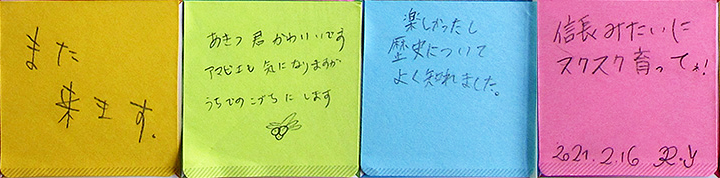 また
来ます。
あきつ君かわいいです
アマビエも気になりますが
うちでのこづちにします
楽しかったし
歴史について
よく知れました。
信長みたいに
スクスク育ってネ!
2021.2.16